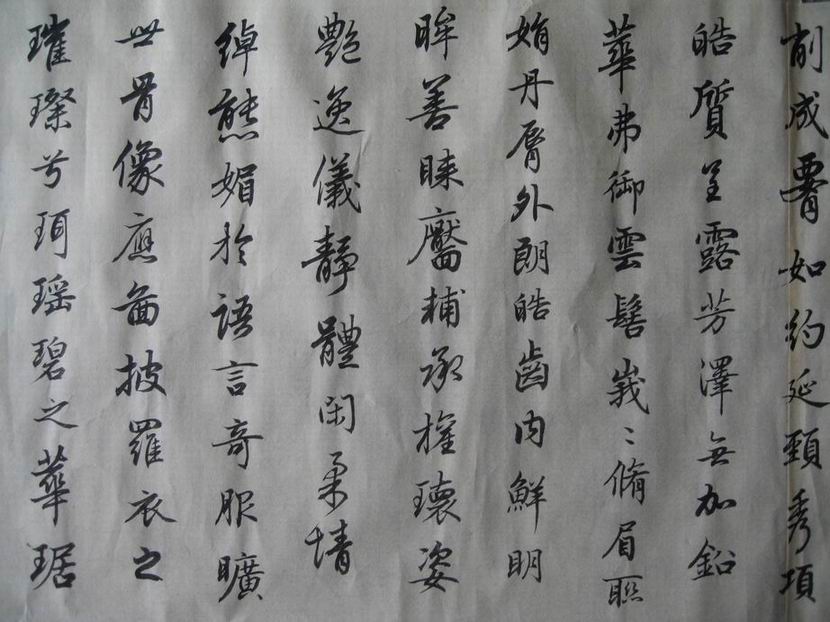 削成署如約延頸秀項
皓質呈露芳澤無加鉛
華弗御雲髻峩〻脩眉聯
娟丹脣外朗皓齒内鮮明
眸善睞靨輔承權瓌姿
艷逸儀靜體閑柔情
綽態媚於語言奇服曠
世骨像應畫披羅衣之
璀璨兮珥瑶碧之華琚